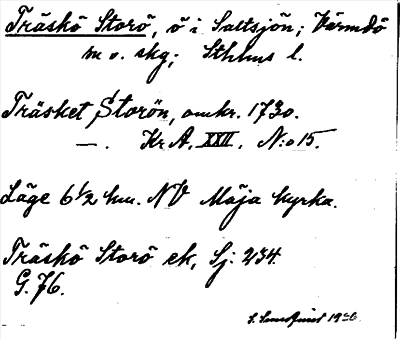 Träskö Storö, ö i Saltsjön; Värmdö
m o. skg; Sthlms l.
Träsket Storön, omkr. 1730.
—. Kr A, XXII, N:o 15.
Läge 6 1/2 km. NV Möja kyrka.
Träskö Storö ek, Sj: 234.
G. 76.
S. Sundquist 19